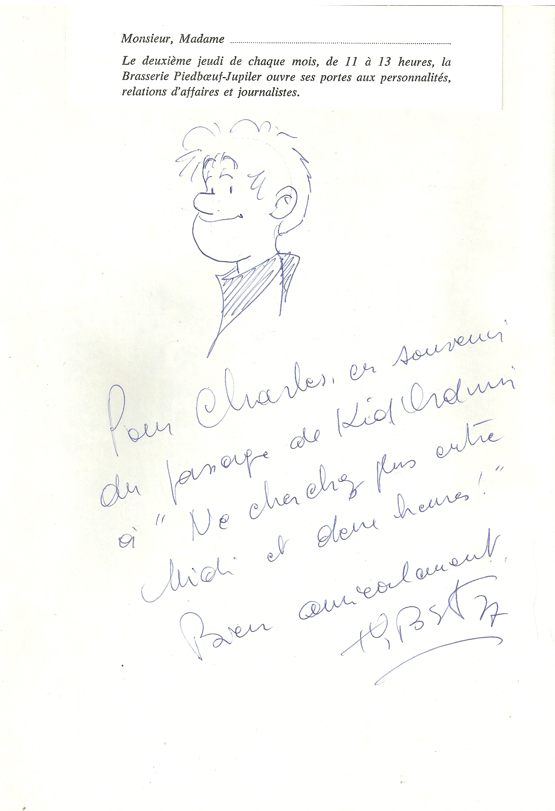 Monsieur, Madame ........................................
Le deuxième jeudi de chaque mois, de 11 à 13 heures, la
Brasserie Piedbœuf-Jupiler ouvre ses portes aux personnalités,
relations d'affaires et journalistes.
Pour Charles, en souvenir
du passage de Kid Ordinn
à "Ne cherchez plus entre
Midi et deux heures!"
Bien amicalement.